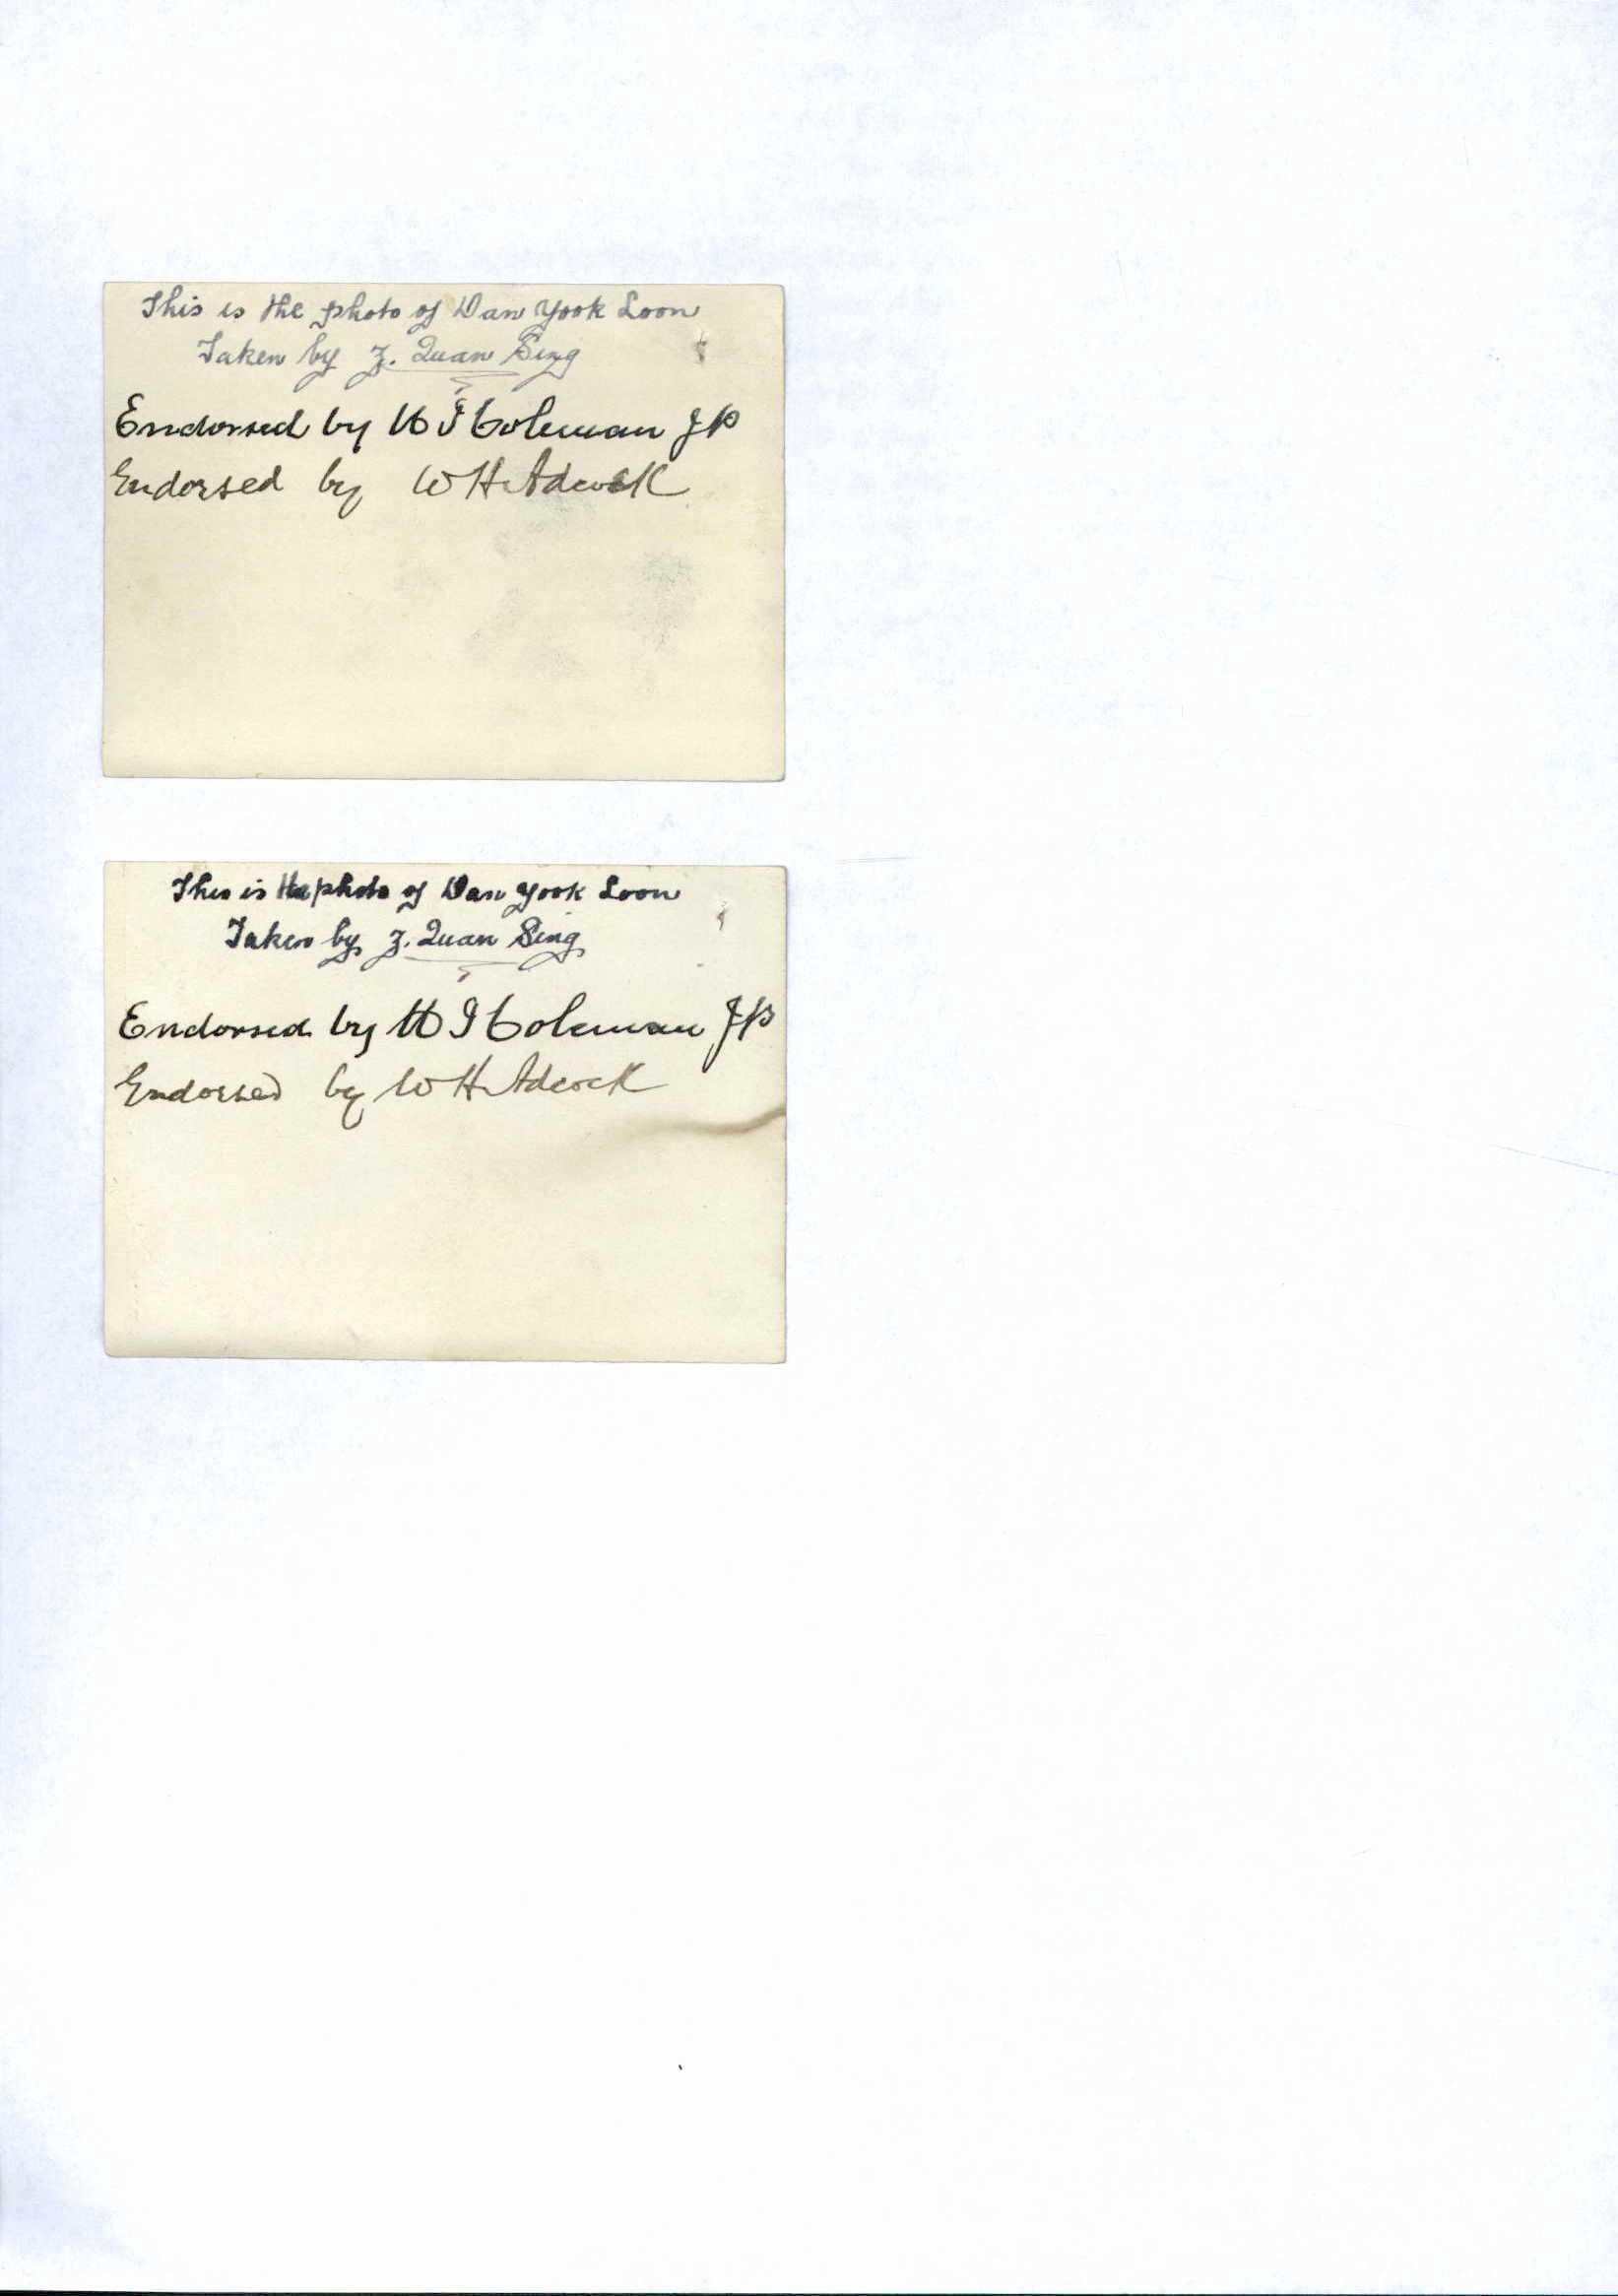 This is the photo of Dan Yook Loon
Taken by Z. Quan Sing
Endorsed by W J Coleman JP
Endorsed by W H Adcock
This is the photo of Dan Yook Loon
Taken by Z. Quan Sing
Endorsed by W J Coleman JP
Endorsed by W H Adcock